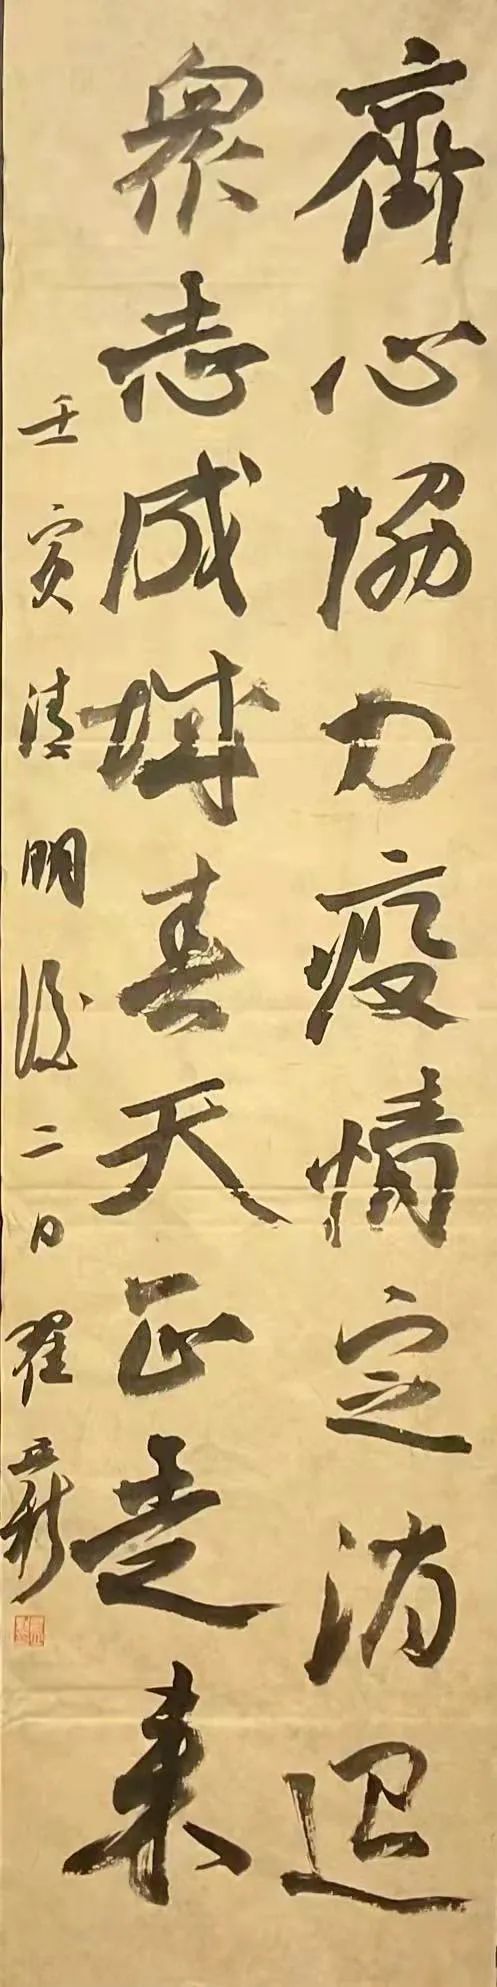 齊心協力疫情定消退
衆志成城春天正走来
壬寅清明後二日翟